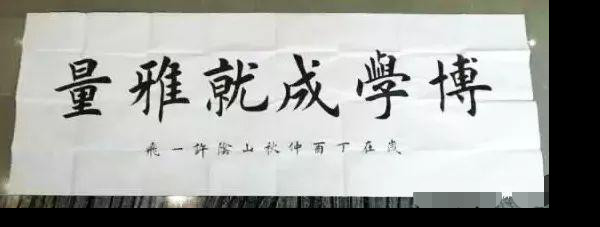 博學成就雅量
歲在丁酉仲秋山陰許一飛